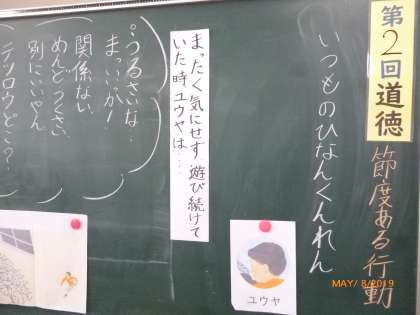 第2回道徳
節度ある行動
いつものひなんくんれん
まったく気にせす遊び続けて
いた時ユウヤは…
・うるさいな…
まっいいか!
関係ない
めんどうくさい
別にいいやん
テツロウどこ?
ユウヤ
MAY/ 8/2019